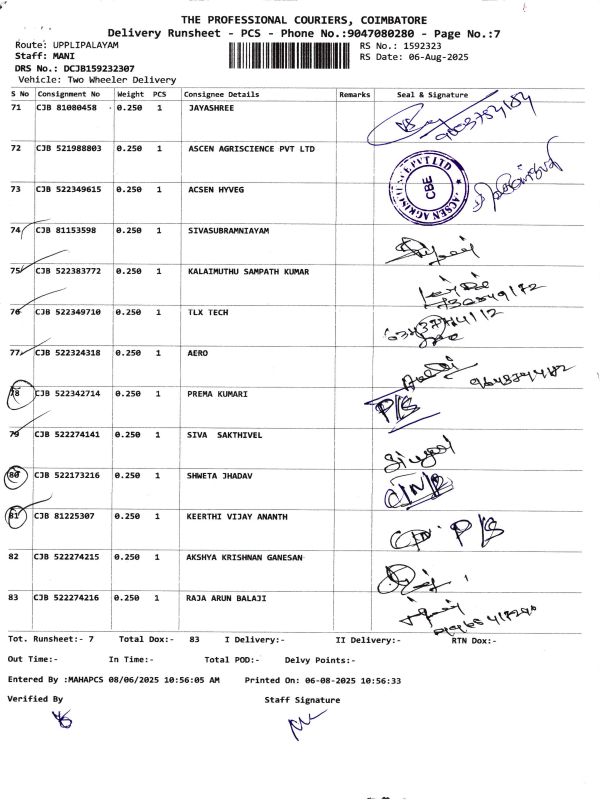 THE PROFESSIONAL COURIERS, COIMBATORE
Delivery Runsheet - PCS - Phone No.:9047080280 - Page No.:7
Route: UPPLIPALAYAM RS No.: 1592323
Staff: MANI RS Date: 06-Aug-2025
DRS No.: DCJB159232307
Vehicle: Two Wheeler Delivery
S No Consignment No Weight PCS Consignee Details Remarks Seal & Signature
71 CJB 81080458 0.250 1 JAYASHREE
72 CJB 521988803 0.250 1 ASCEN AGRISCIENCE PVT LTD
73 CJB 522349615 0.250 1 ACSEN HYVEG
CBE
74 CJB 81153598 0.250 1 SIVASUBRAMNIAYAM
75 CJB 522383772 0.250 1 KALAIMUTHU SAMPATH KUMAR
76 CJB 522349710 0.250 1 TLX TECH
77 CJB 522324318 0.250 1 AERO
78 CJB 522342714 0.250 1 PREMA KUMARI P/S
79 CJB 522274141 0.250 1 SIVA SAKTHIVEL
80 CJB 522173216 0.250 1 SHWETA JHADAV
81 CJB 81225307 0.250 1 KEERTHI VIJAY ANANTH P/S
82 CJB 522274215 0.250 1 AKSHYA KRISHNAN GANESAN
83 CJB 522274216 0.250 1 RAJA ARUN BALAJI
Tot. Runsheet:- 7 Total Dox:- 83 I Delivery:- II Delivery:- RTN Dox:-
Out Time:- In Time:- Total POD:- Delvy Points:-
Entered By :MAHAPCS 08/06/2025 10:56:05 AM Printed On: 06-08-2025 10:56:33
Verified By Staff Signature